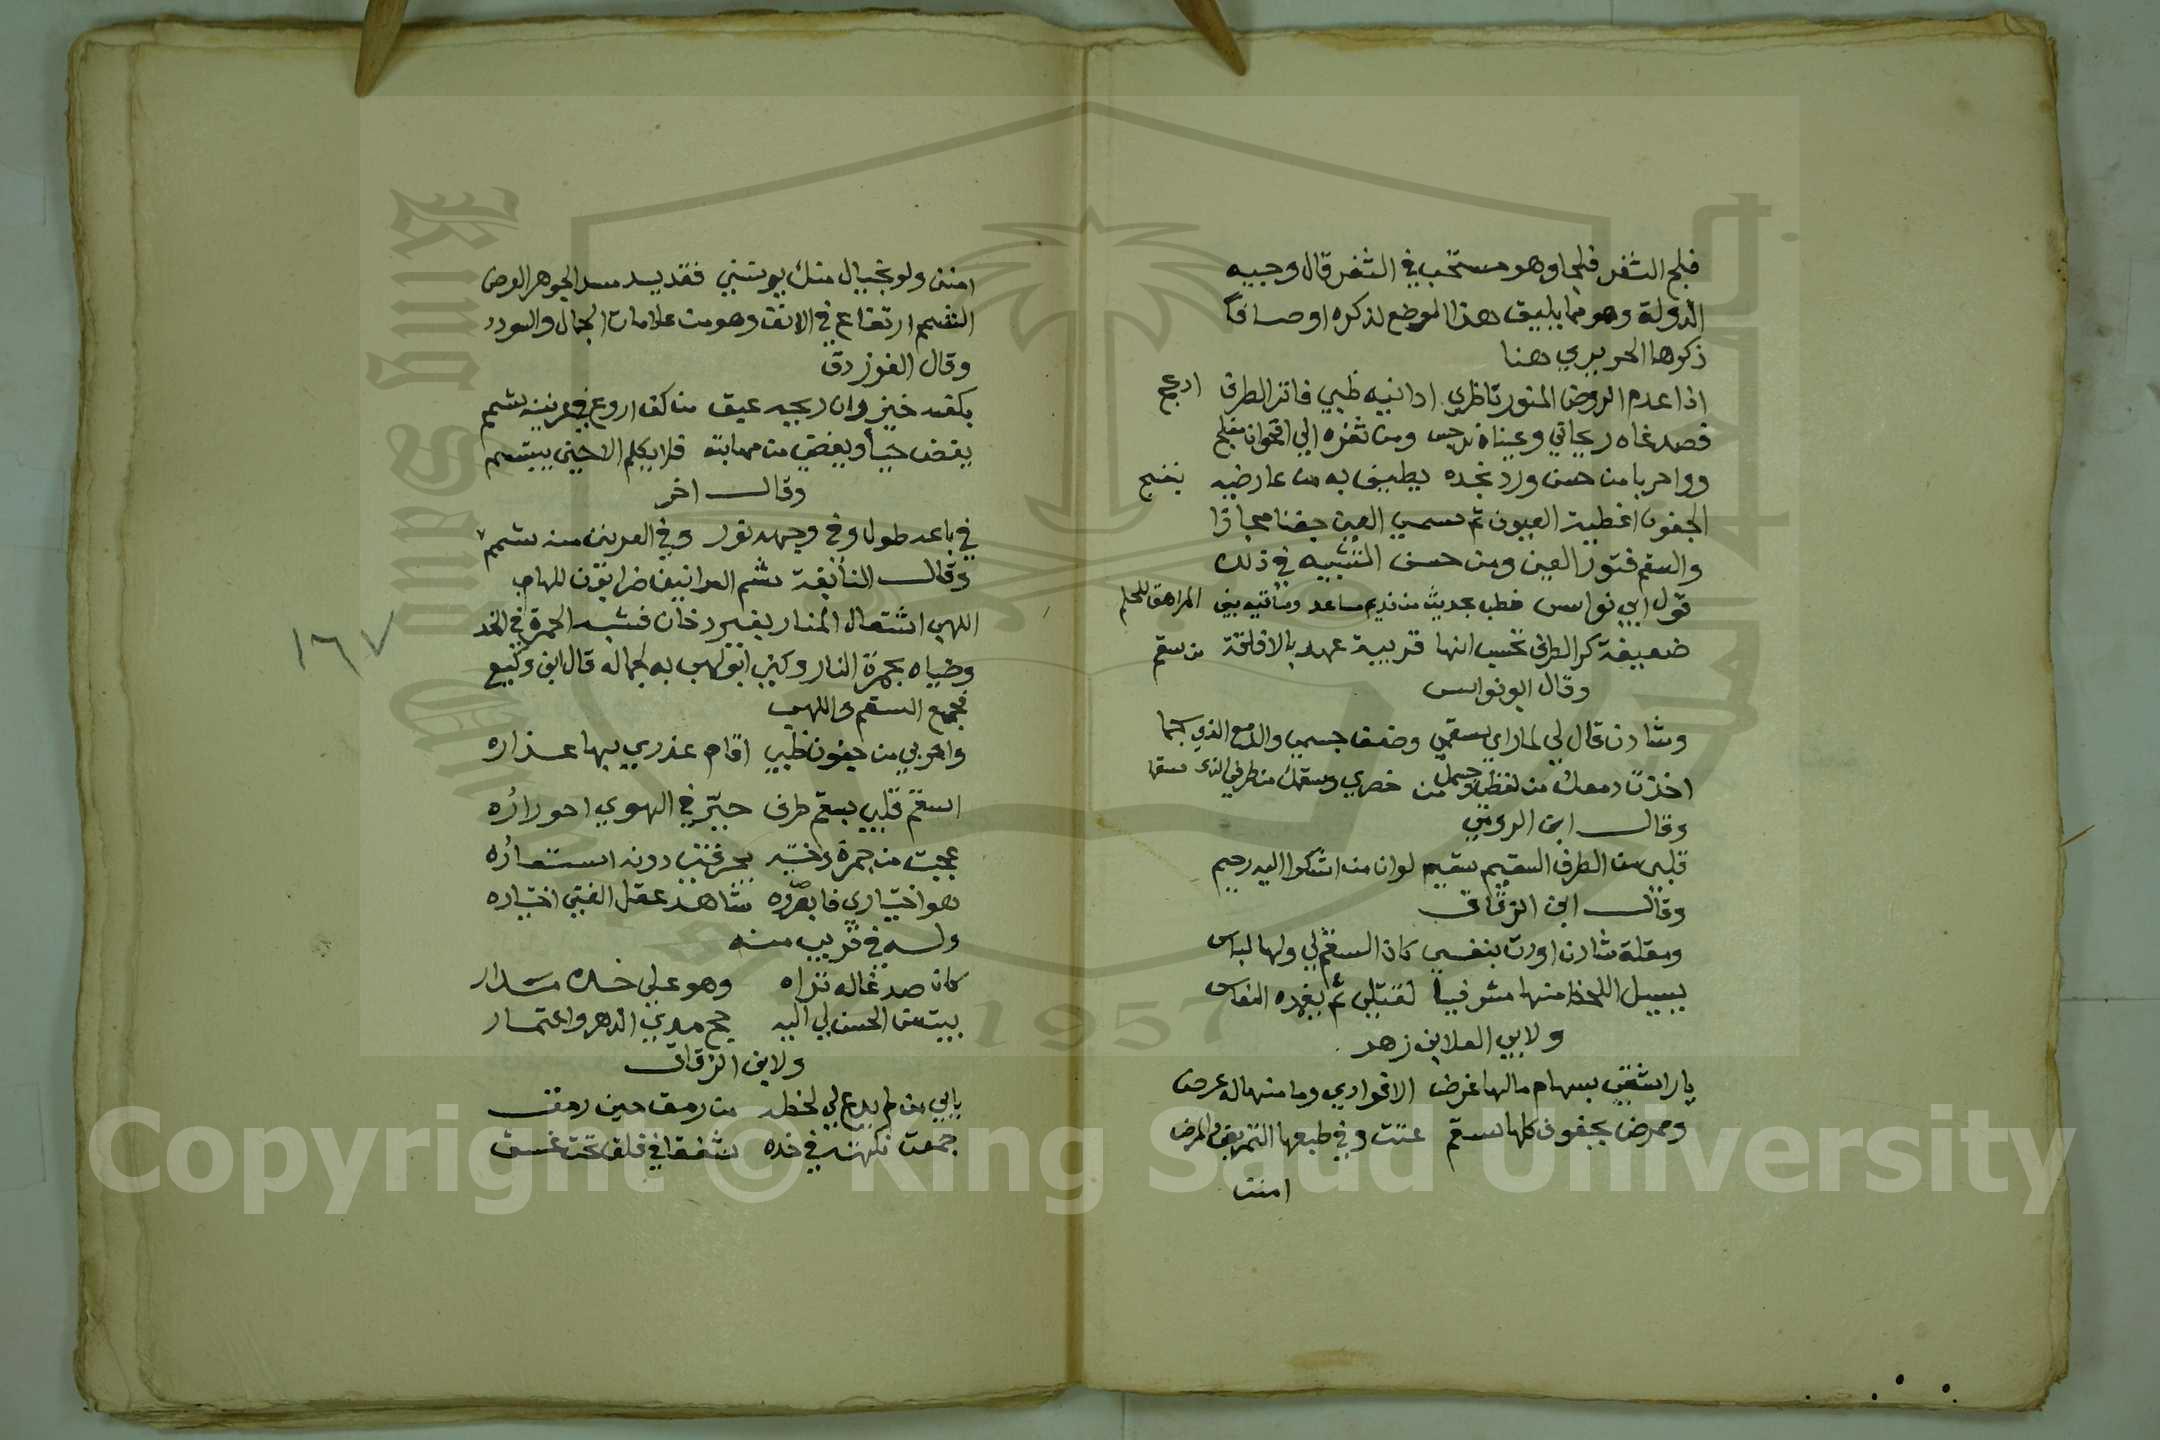 فلج الثغر فلجا وهو مستحب في الثغر قال وجيه
الدولة وهو مما يليق هذا الموضع لذكره اوصافا
ذكرها الحريري هنا
اذا عدم الروض المنور ناظري ادانيه ظبي فاتر الطرف ادعج
فصدغاه ريحاني وعيناه نرجس ومن ثغره الي اقحوان مفلج
وواحربا من حسن ورد بخده يطيف به من عارضيه بنفسج
الجفون اغطية العيون ثم سمي العين جفنا مجازا
والسقم فتور العين ومن حسن التشبيه في ذلك
قول ابي نواس خطب بحديث من نديم مساعد وساقيه بين المراهق للحلم
ضعيفة كر الطرف تحسب انها قريبة عهد بالافاقة من سقم
وقال ابو نواس
وشادن قال لي لما راي سقمي وضعف جسمي والدمع الذي سجما
اخذت دمعك من لفظي وجسمك من خصري وسقمك من طرفي الذي سقما
وقال ابن الرومي
قلبي من الطرف السقيم سقيم لو ان من اشكوا اليه رحيم
وقال ابن الزقاق
ومقلة شادن اودت بنفسي كان السقم لي ولها لباس
يسيل اللحظ منها مشرفيا لقتلي ثم يغمده النعاس
ولابي العلا بن زهر
يا راشقتي بسهام مالها غرض الا فوادي وما منها له عرض
وممرضي بجفون كلها سقم عنت وفي طبعها التمريض والمرض
امنن
امنن ولو بخيال منك يونسني فقد يسد مسد الجوهر العرض
الشمم ارتفاع في الانف وهو من علامات الجمال والسودد
وقال الفرزدق
بكفه خيزران ريحه عبق من كف اروع في عرنينه شمم
يغضي حيا ويغضي من مهابته فلا يكلم الا حين يبتسم
وقال اخر
في باعه طول وفي وجهه نور وفي العرنين منه شمم
وقال النابغة شم العرانين ضرابون للهام
اللهب اشتعال النار بغير دخان فشبه الحمرة في الخد
وضياه بجمرة النار وكني اتق لهب به لجماله قال ابن وكيع
فجمع السقم واللهب
واحربي من جفون ظبي اقام عذري بها عذاره
اسقم قلبي بسقم طرف حير في الهوي احوراره
عجبت من جمرة وخديه يحرقني دونه استعاره
هو اختياري فابصروه شاهد عقل الفتي اختياره
وله في قريب منه
كان صدغا له تراه وهو علي خده مدار
بيت من الحسن لي اليه حج مدي الدهر واعتمار
ولابن الزقاق
بابي من لم يدع لي لحظه من رمق حين رمق
جمعت نكهته في خده شفقا في فلق تحت غسق
١٦٧
King Saud University
1957
Copyright © King Saud University